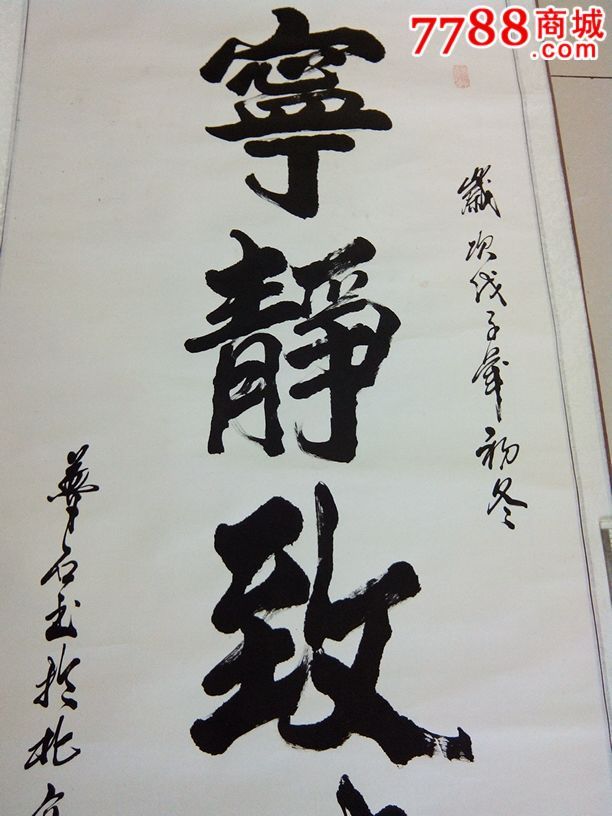 7788商城
.com
歲次戊子年初冬
寧靜致
華石書於北京